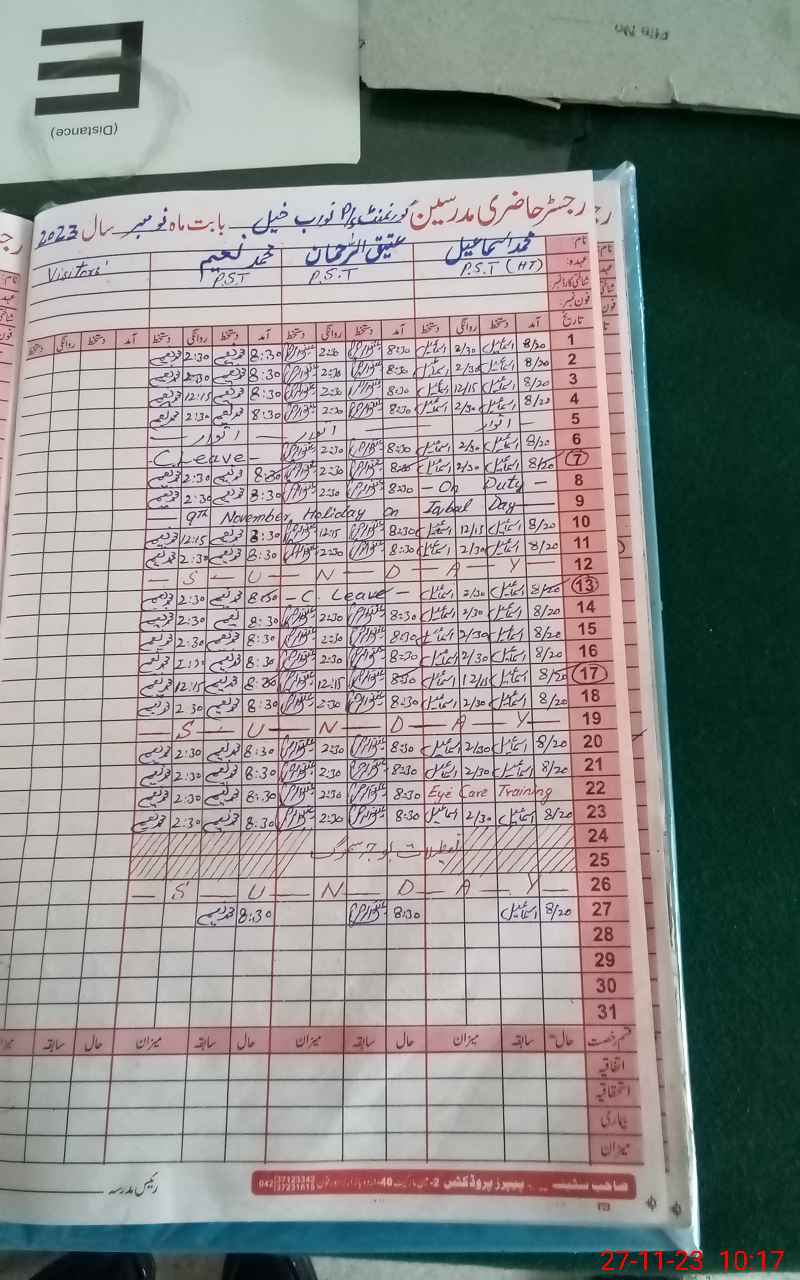 E
(Distance)
File No
رجسٹر حاضری مدرسین گورنمنٹ P/S نورب خیل بابت ماہ نومبر سال 2023
نام: محمد اسماعیل عتیق الرحمان محمد نعیم Visitors'
عہدہ: P.S.T (HT) P.S.T P.S.T
شناختی کارڈ نمبر
فون نمبر:
تاریخ آمد دستخط روانگی دستخط آمد دستخط روانگی دستخط آمد دستخط روانگی دستخط آمد دستخط روانگی دستخط
1 8/20 اسماعیل 2/30 اسماعیل 8:30 2:30 8:30 محمد نعیم 2:30 محمد نعیم
2 8/20 اسماعیل 2/30 اسماعیل 8:30 2:30 8:30 محمد نعیم 2:30 محمد نعیم
3 8/20 اسماعیل 12/15 اسماعیل 8:30 2:30 8:30 محمد نعیم 12:15 محمد نعیم
4 8/20 اسماعیل 2/30 اسماعیل 8:30 2:30 8:30 محمد نعیم 2:30 محمد نعیم
5 اتوار اتوار اتوار
6 8/20 اسماعیل 2/30 اسماعیل 8:30 2:30 - C. Leave -
7 8/20 اسماعیل 2/30 اسماعیل 8:30 2:30 8:30 محمد نعیم 2:30 محمد نعیم
8 - On Duty - 8:30 2:30 8:30 محمد نعیم 2:30 محمد نعیم
9 9th November, Holiday on Iqbal Day
10 8/20 اسماعیل 12/15 اسماعیل 8:30 12:15 8:30 محمد نعیم 12:15 محمد نعیم
11 8/20 اسماعیل 2/30 اسماعیل 8:30 2:30 8:30 محمد نعیم 2:30 محمد نعیم
12 — S — U — N — D — A — Y —
13 8/20 اسماعیل 2/30 اسماعیل - C. Leave - 8:30 محمد نعیم 2:30 محمد نعیم
14 8/20 اسماعیل 2/30 اسماعیل 8:30 2:30 8:30 محمد نعیم 2:30 محمد نعیم
15 8/20 اسماعیل 2/30 اسماعیل 8:30 2:30 8:30 محمد نعیم 2:30 محمد نعیم
16 8/20 اسماعیل 2/30 اسماعیل 8:30 2:30 8:30 محمد نعیم محمد نعیم
17 8/20 اسماعیل 12/15 اسماعیل 8:30 12:15 8:30 محمد نعیم 12:15 محمد نعیم
18 8/20 اسماعیل 2/30 اسماعیل 8:30 2:30 8:30 محمد نعیم 2:30 محمد نعیم
19 — S — U — N — D — A — Y —
20 8/20 اسماعیل 2/30 اسماعیل 8:30 2:30 8:30 محمد نعیم 2:30 محمد نعیم
21 8/20 اسماعیل 2/30 اسماعیل 8:30 2:30 8:30 محمد نعیم 2:30 محمد نعیم
22 Eye Care Training 8:30 2:30 8:30 محمد نعیم 2:30 محمد نعیم
23 8/20 اسماعیل 2/30 اسماعیل 8:30 2:30 8:30 محمد نعیم 2:30 محمد نعیم
24 تعطیلات بوجہ سموگ
25
26 — S — U — N — D — A — Y —
27 8/20 اسماعیل 8:30 8:30 محمد نعیم
28
29
30
31
قسم رخصت حال سابقہ میزان حال سابقہ میزان حال سابقہ میزان حال سابقہ میزان
اتفاقیہ
استحقاقیہ
بیماری
میزان
رئیس مدرسہ
پیپرز پروڈکٹس 2- 40- 042 37123342 37231615
27-11-23 10:17